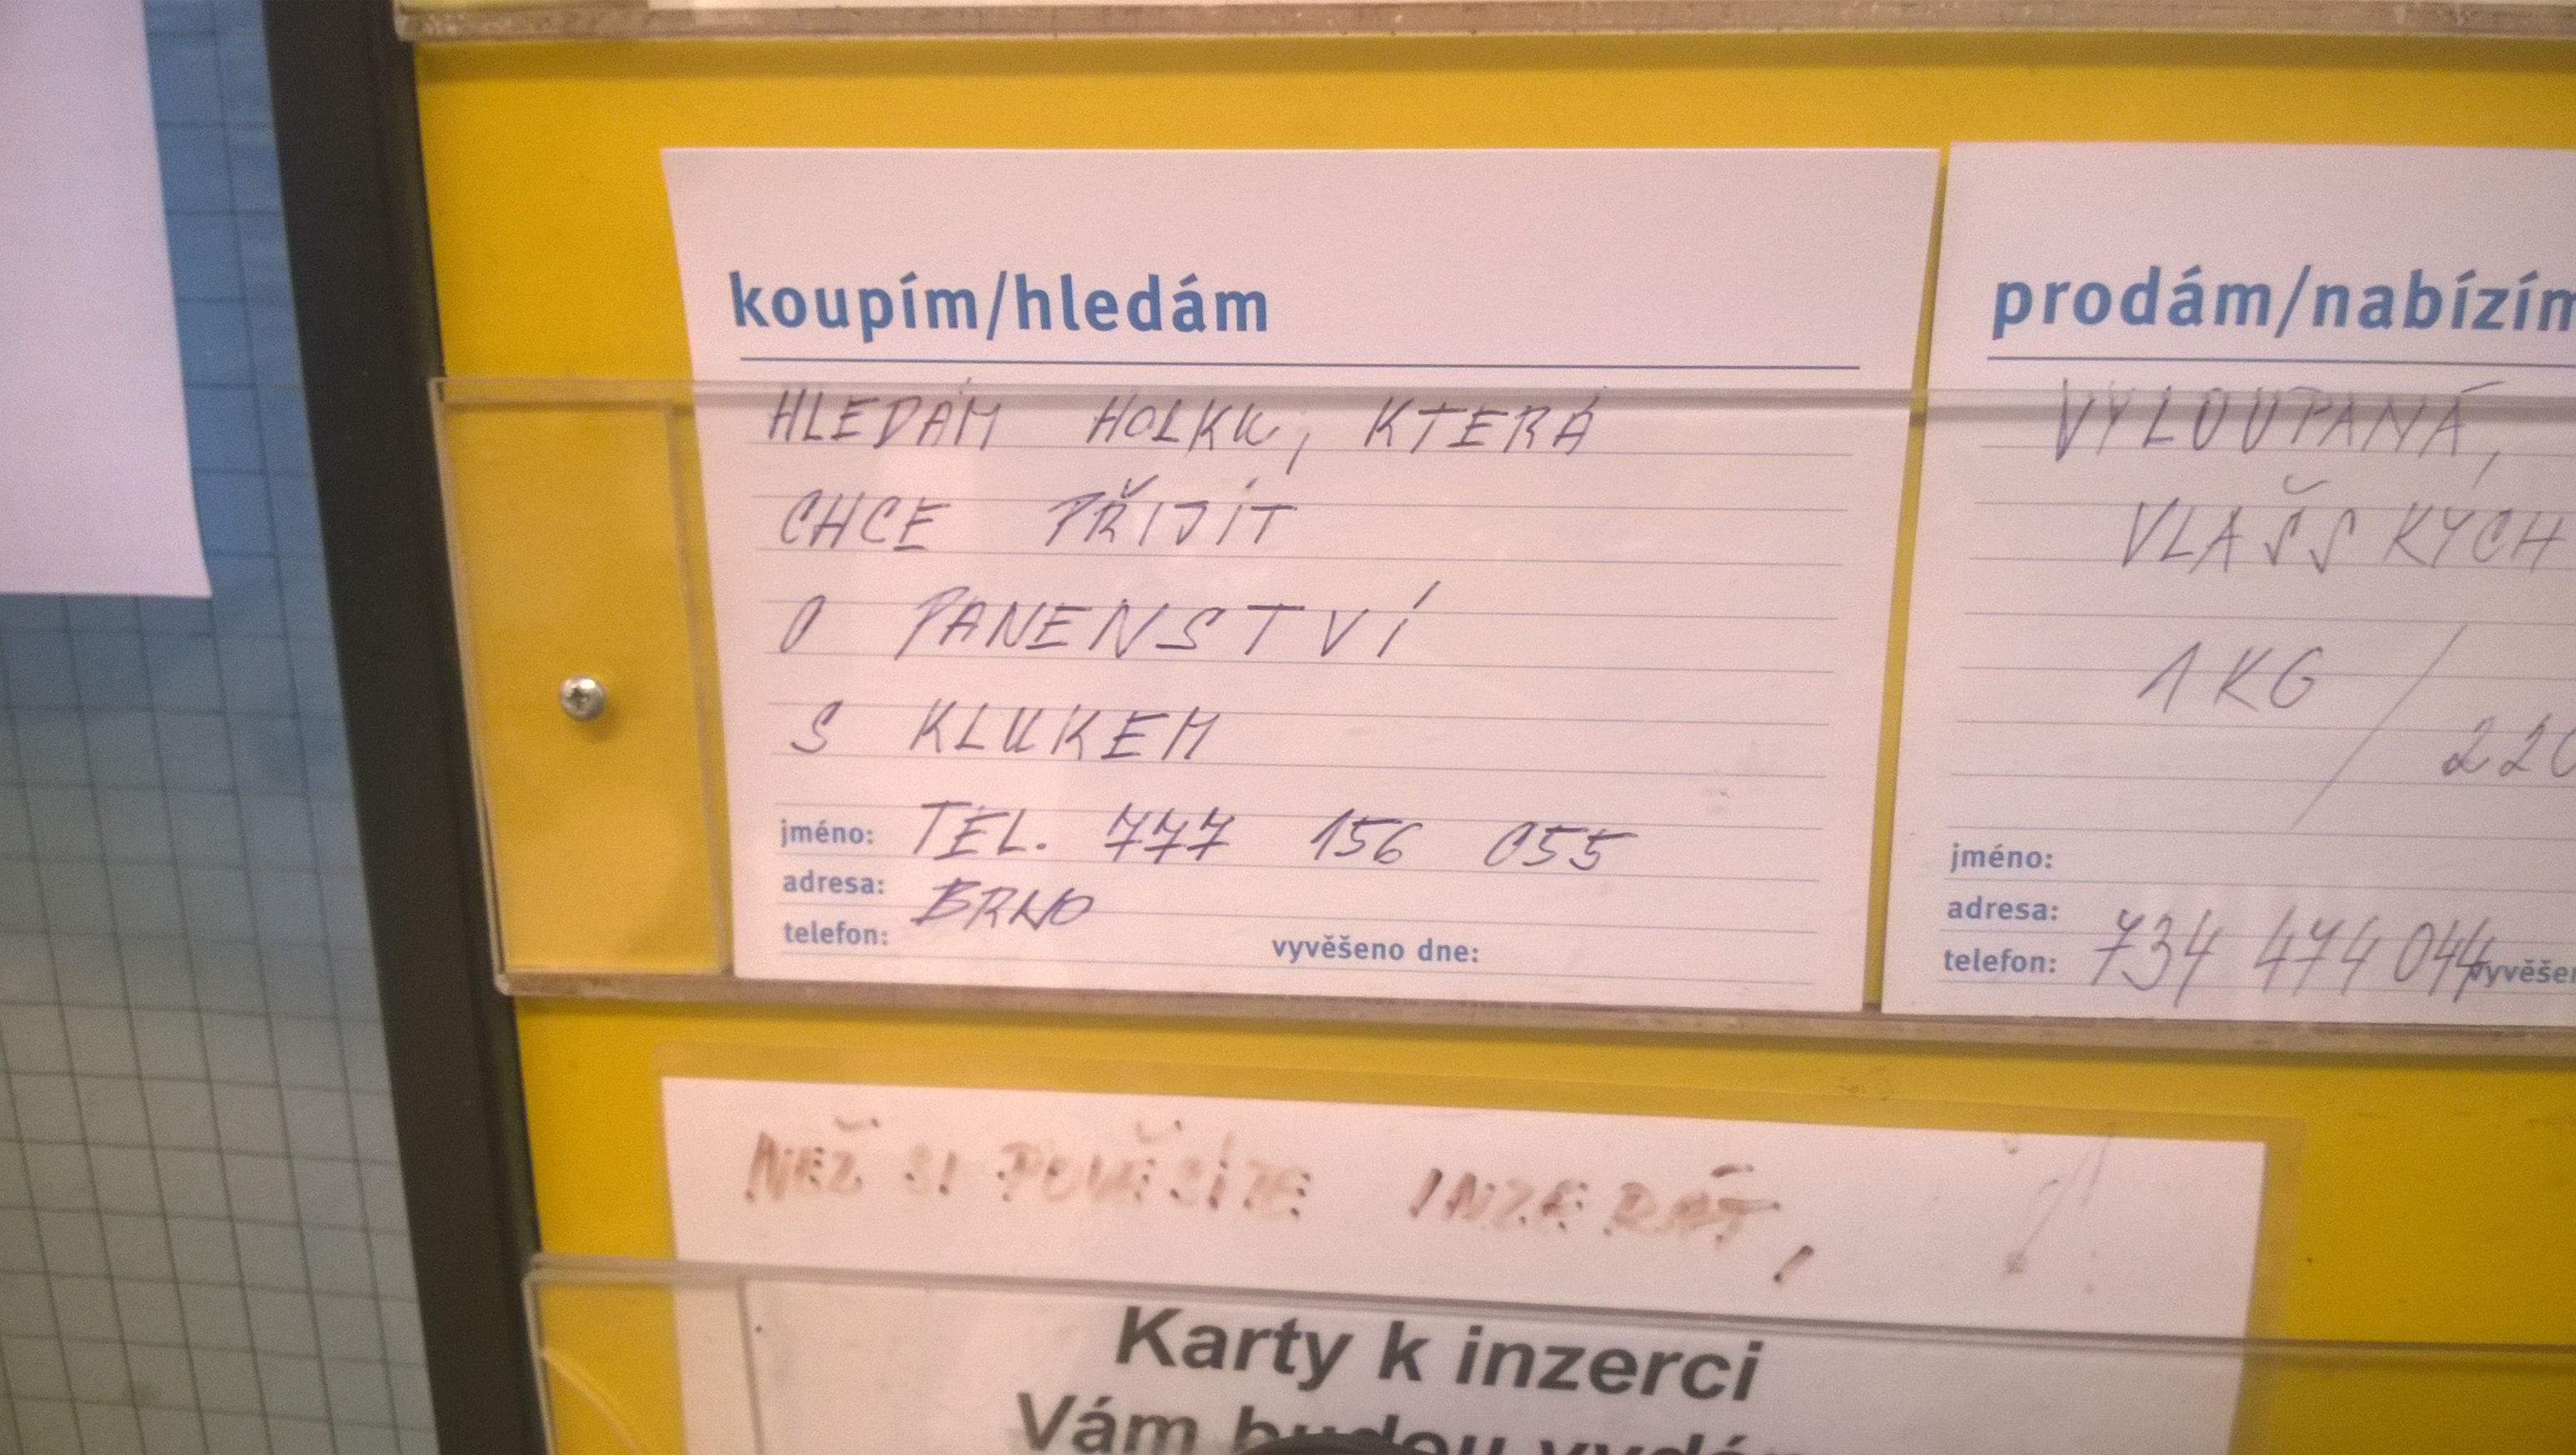 koupím/hledám
HLEDÁM HOLKU, KTERÁ
CHCE PŘIJÍT
O PANENSTVÍ
S KLUKEM
jméno: TEL. 777 156 055
adresa: BRNO
telefon:
vyvěšeno dne:
prodám/nabízím
VYLOUPANÁ,
VLAŠSKÝCH
1 KG /
220
jméno:
adresa:
telefon: 734 474 044
NEŽ SI POVĚSÍTE INZERÁT,
Karty k inzerci
Vám budou